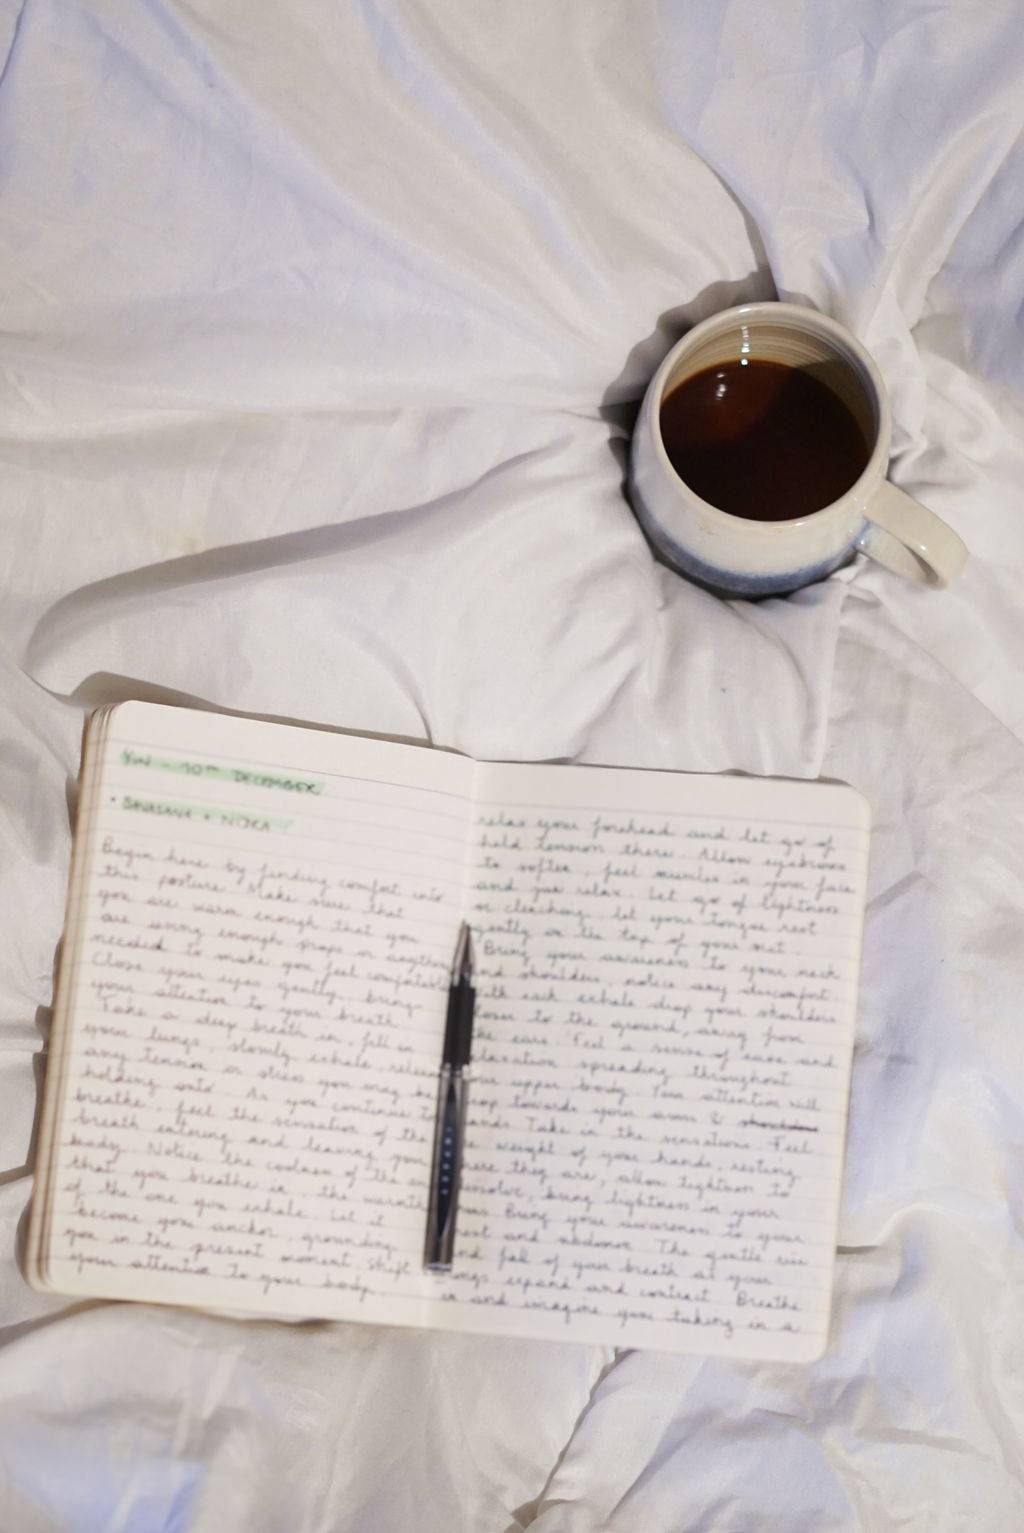 YIN - 10TH DECEMBER
• SAVASANA + NIDRA
Begin here by finding comfort into
this posture. Make sure that
you are warm enough that you
are using enough props or anything
needed to make you feel comfortable
Close your eyes gently, bring
your attention to your breath.
Take a deep breath in, fill in
your lungs, slowly exhale, release
any tension or stress you may be
holding onto. As you continue to
breathe, feel the sensation of the
breath entering and leaving your
body. Notice the coolness of the air
that you breathe in, the warmth
of the one you exhale. Let it
become your anchor, grounding
you in the present moment. Shift
your attention to your body.
relax your forehead and let go of
held tension there. Allow eyebrows
to soften, feel muscles in your face
and jaw relax. Let go of tightness
or clenching, let your tongue rest
gently on the top of your
Bring your awareness to your neck
and shoulders, notice any discomfort.
With each exhale drop your shoulders
closer to the ground, away from
the ears. Feel a sense of ease and
relaxation spreading throughout
your upper body. Your attention will
drop towards your arms &
hands. Take in the sensations. Feel
the weight of your hands, resting
where they are, allow tightness to
dissolve, bring lightness in your
Bring your awareness to your
chest and abdomen. The gentle rise
and fall of your breath as your
lungs expand and contract. Breathe
in and imagine you taking in a